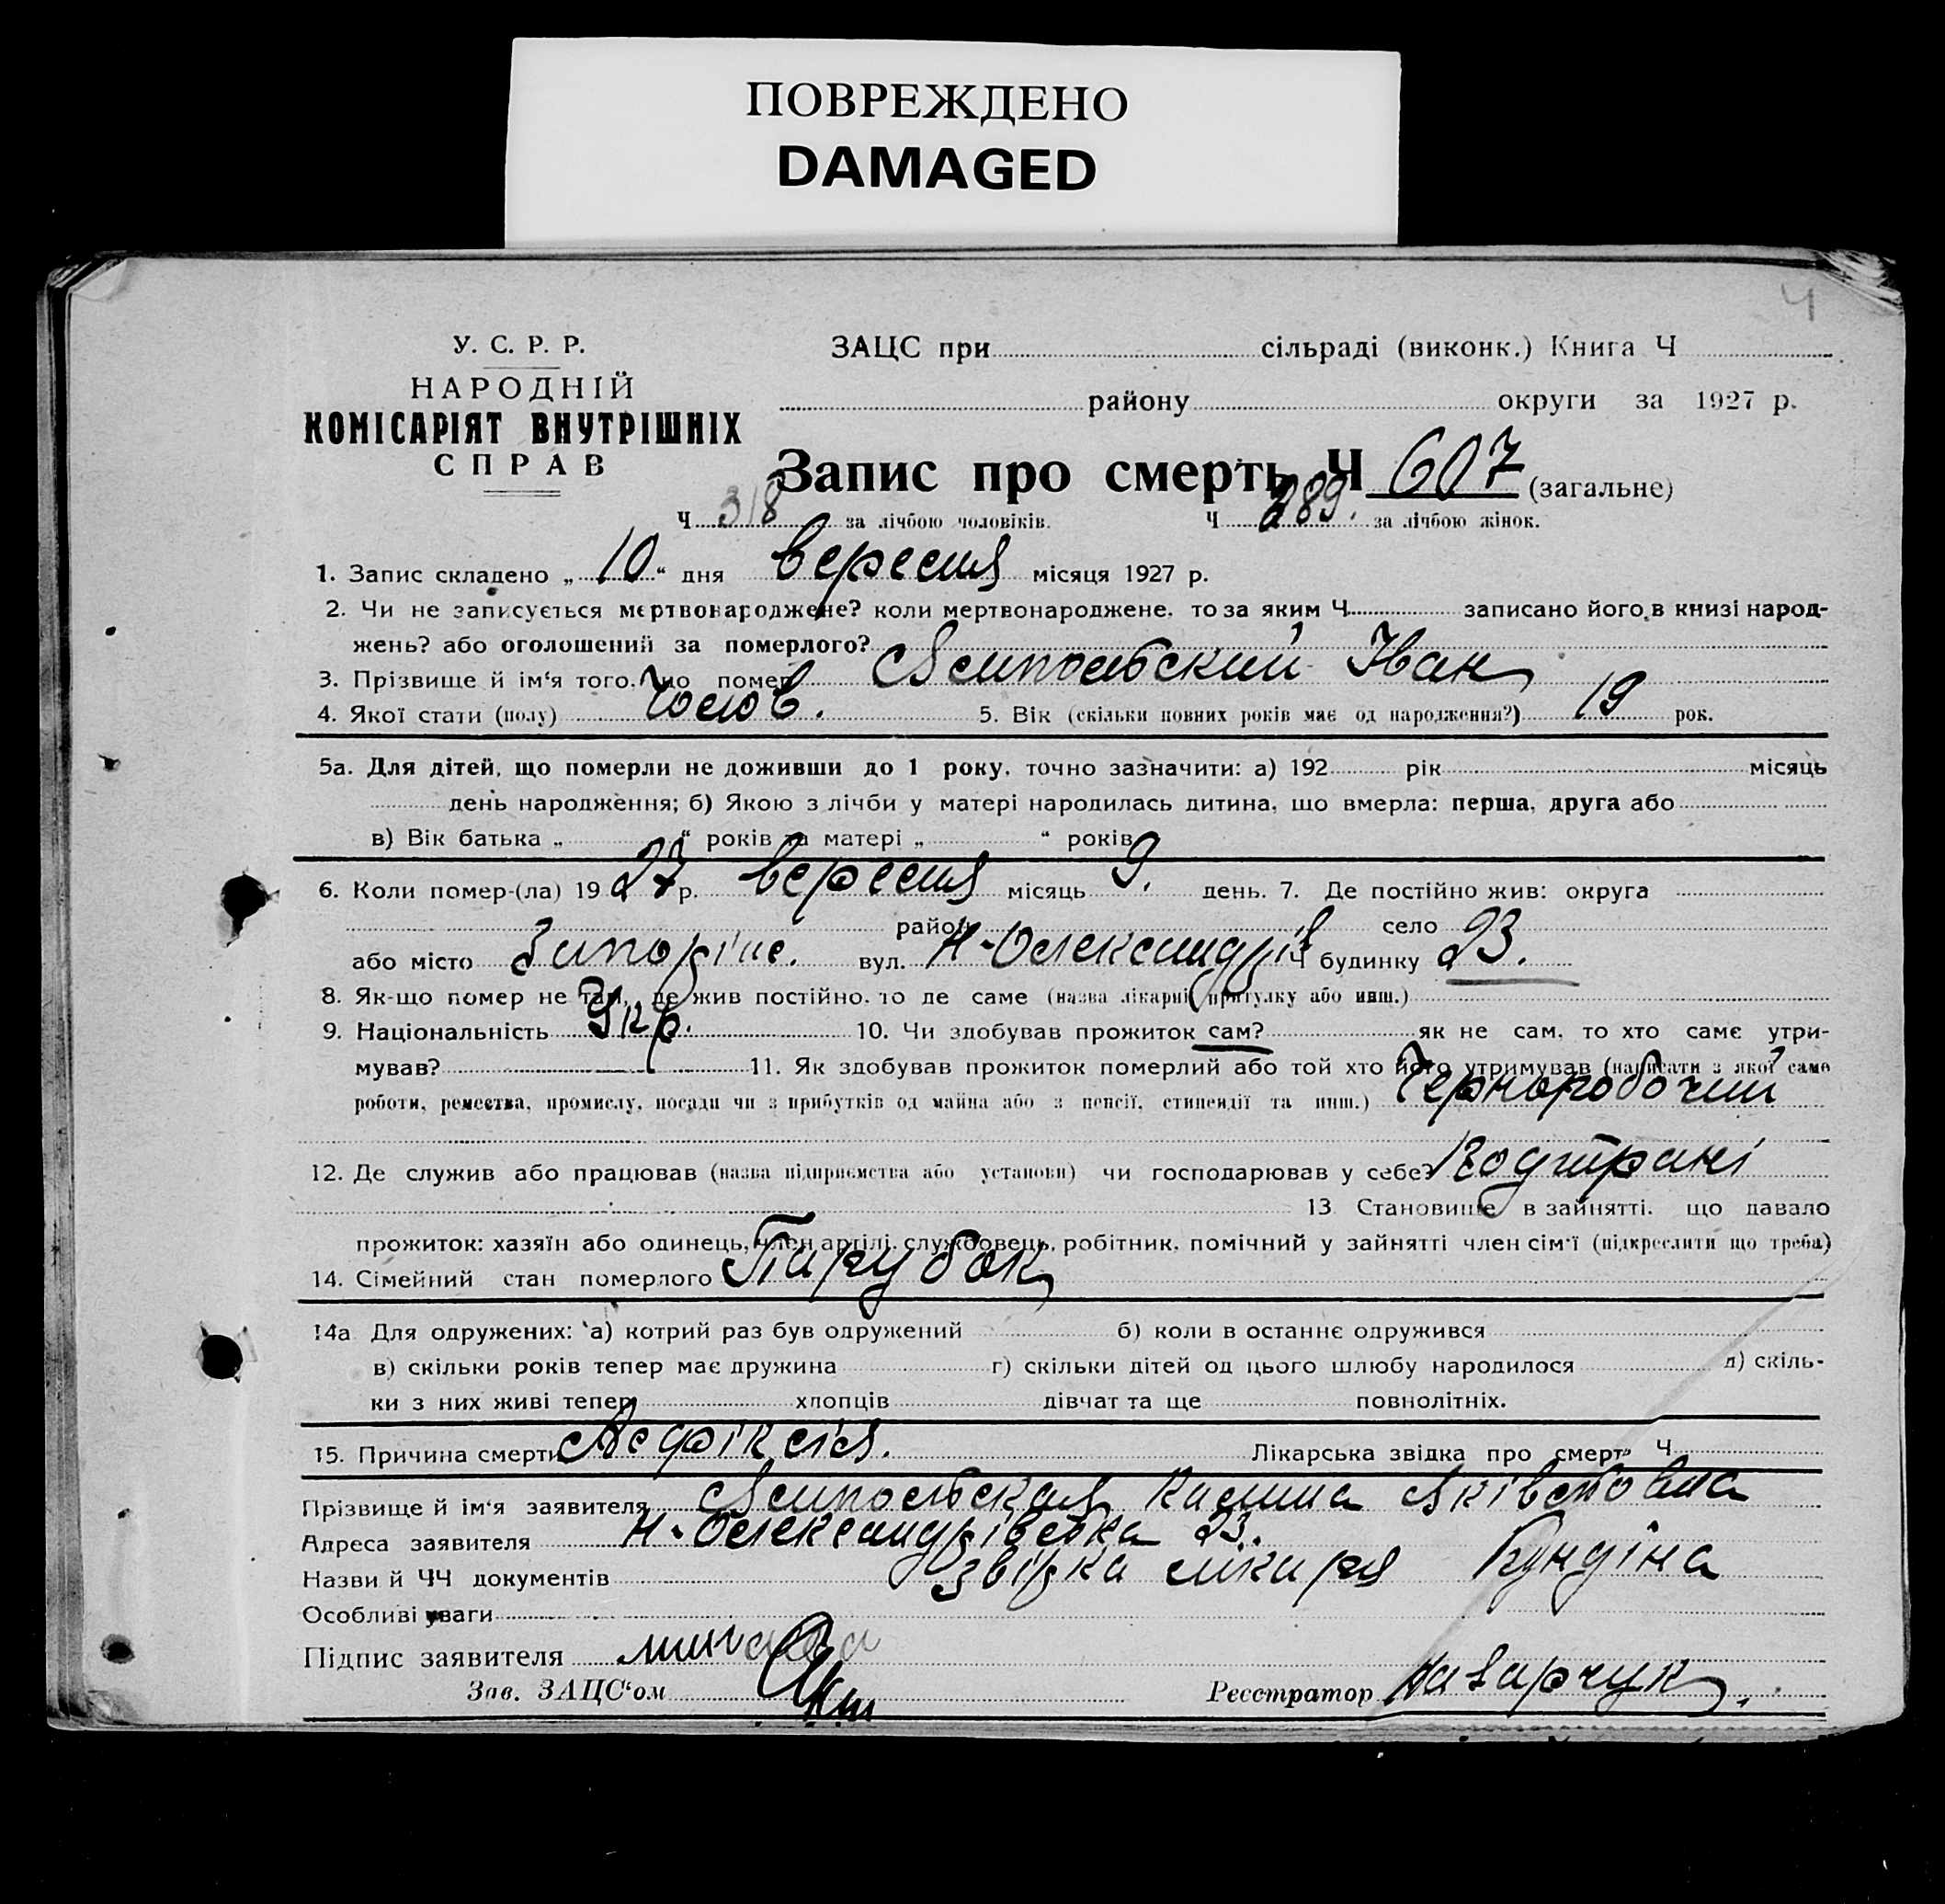 ПОВРЕЖДЕНО
DAMAGED
4
У. С. Р. Р.
НАРОДНІЙ
КОМІСАРІЯТ ВНУТРІШНІХ
СПРАВ
ЗАЦС при сільраді (виконк.) Книга Ч
району округи за 1927 р.
Запис про смерть Ч 607 (загальне)
Ч 318 за лічбою чоловіків. Ч 289. за лічбою жінок.
1. Запис складено „ 10 “ дня вересня місяця 1927 р.
2. Чи не записується мертвонароджене? коли мертвонароджене, то за яким Ч записано його в книзі народ-
жень? або оголошений за померлого?
3. Прізвище й ім'я того, що помер Іван
4. Якої стати (полу) чолов. 5. Вік (скільки повних років має од народження?) 19 рок.
5а. Для дітей, що померли не доживши до 1 року, точно зазначити: а) 192 рік місяць
день народження; б) Якою з лічби у матері народилась дитина, що вмерла: перша, друга або
в) Вік батька „ “ років та матері „ “ років
6. Коли помер-(ла) 1927 р. вересня місяць 9. день. 7. Де постійно жив: округа
район село
або місто Запоріжє. вул. Н-Олександрів Ч будинку 23.
8. Як-що помер не там, де жив постійно, то де саме (назва лікарні, притулку або инш.)
9. Національність Укр. 10. Чи здобував прожиток сам? як не сам, то хто саме утри-
мував? 11. Як здобував прожиток померлий або той хто його утримував (написати з якої саме
роботи, ремества, промислу, посади чи з прибутків од майна або з пенсії, стипендії та инш.) Чернорабочий
12. Де служив або працював (назва підприємства або установи) чи господарював у себе?
13. Становище в зайнятті, що давало
прожиток: хазяїн або одинець, член артілі, службовець, робітник, помічний у зайнятті член сім'ї (підкреслити що треба)
14. Сімейний стан померлого Парубок
14а Для одружених: а) котрий раз був одружений б) коли в останнє одружився
в) скільки років тепер має дружина г) скільки дітей од цього шлюбу народилося д) скіль-
ки з них живі тепер хлопців дівчат та ще повнолітніх.
15. Причина смерти Асфіксія. Лікарська звідка про смерть Ч
Прізвище й ім'я заявителя Яківловна
Адреса заявителя Н-Олександрівська 23.
Назви й ЧЧ документів лікаря Кундіна
Особливі уваги
Підпис заявителя
Зав. ЗАЦС'ом Реєстратор Назарчук.